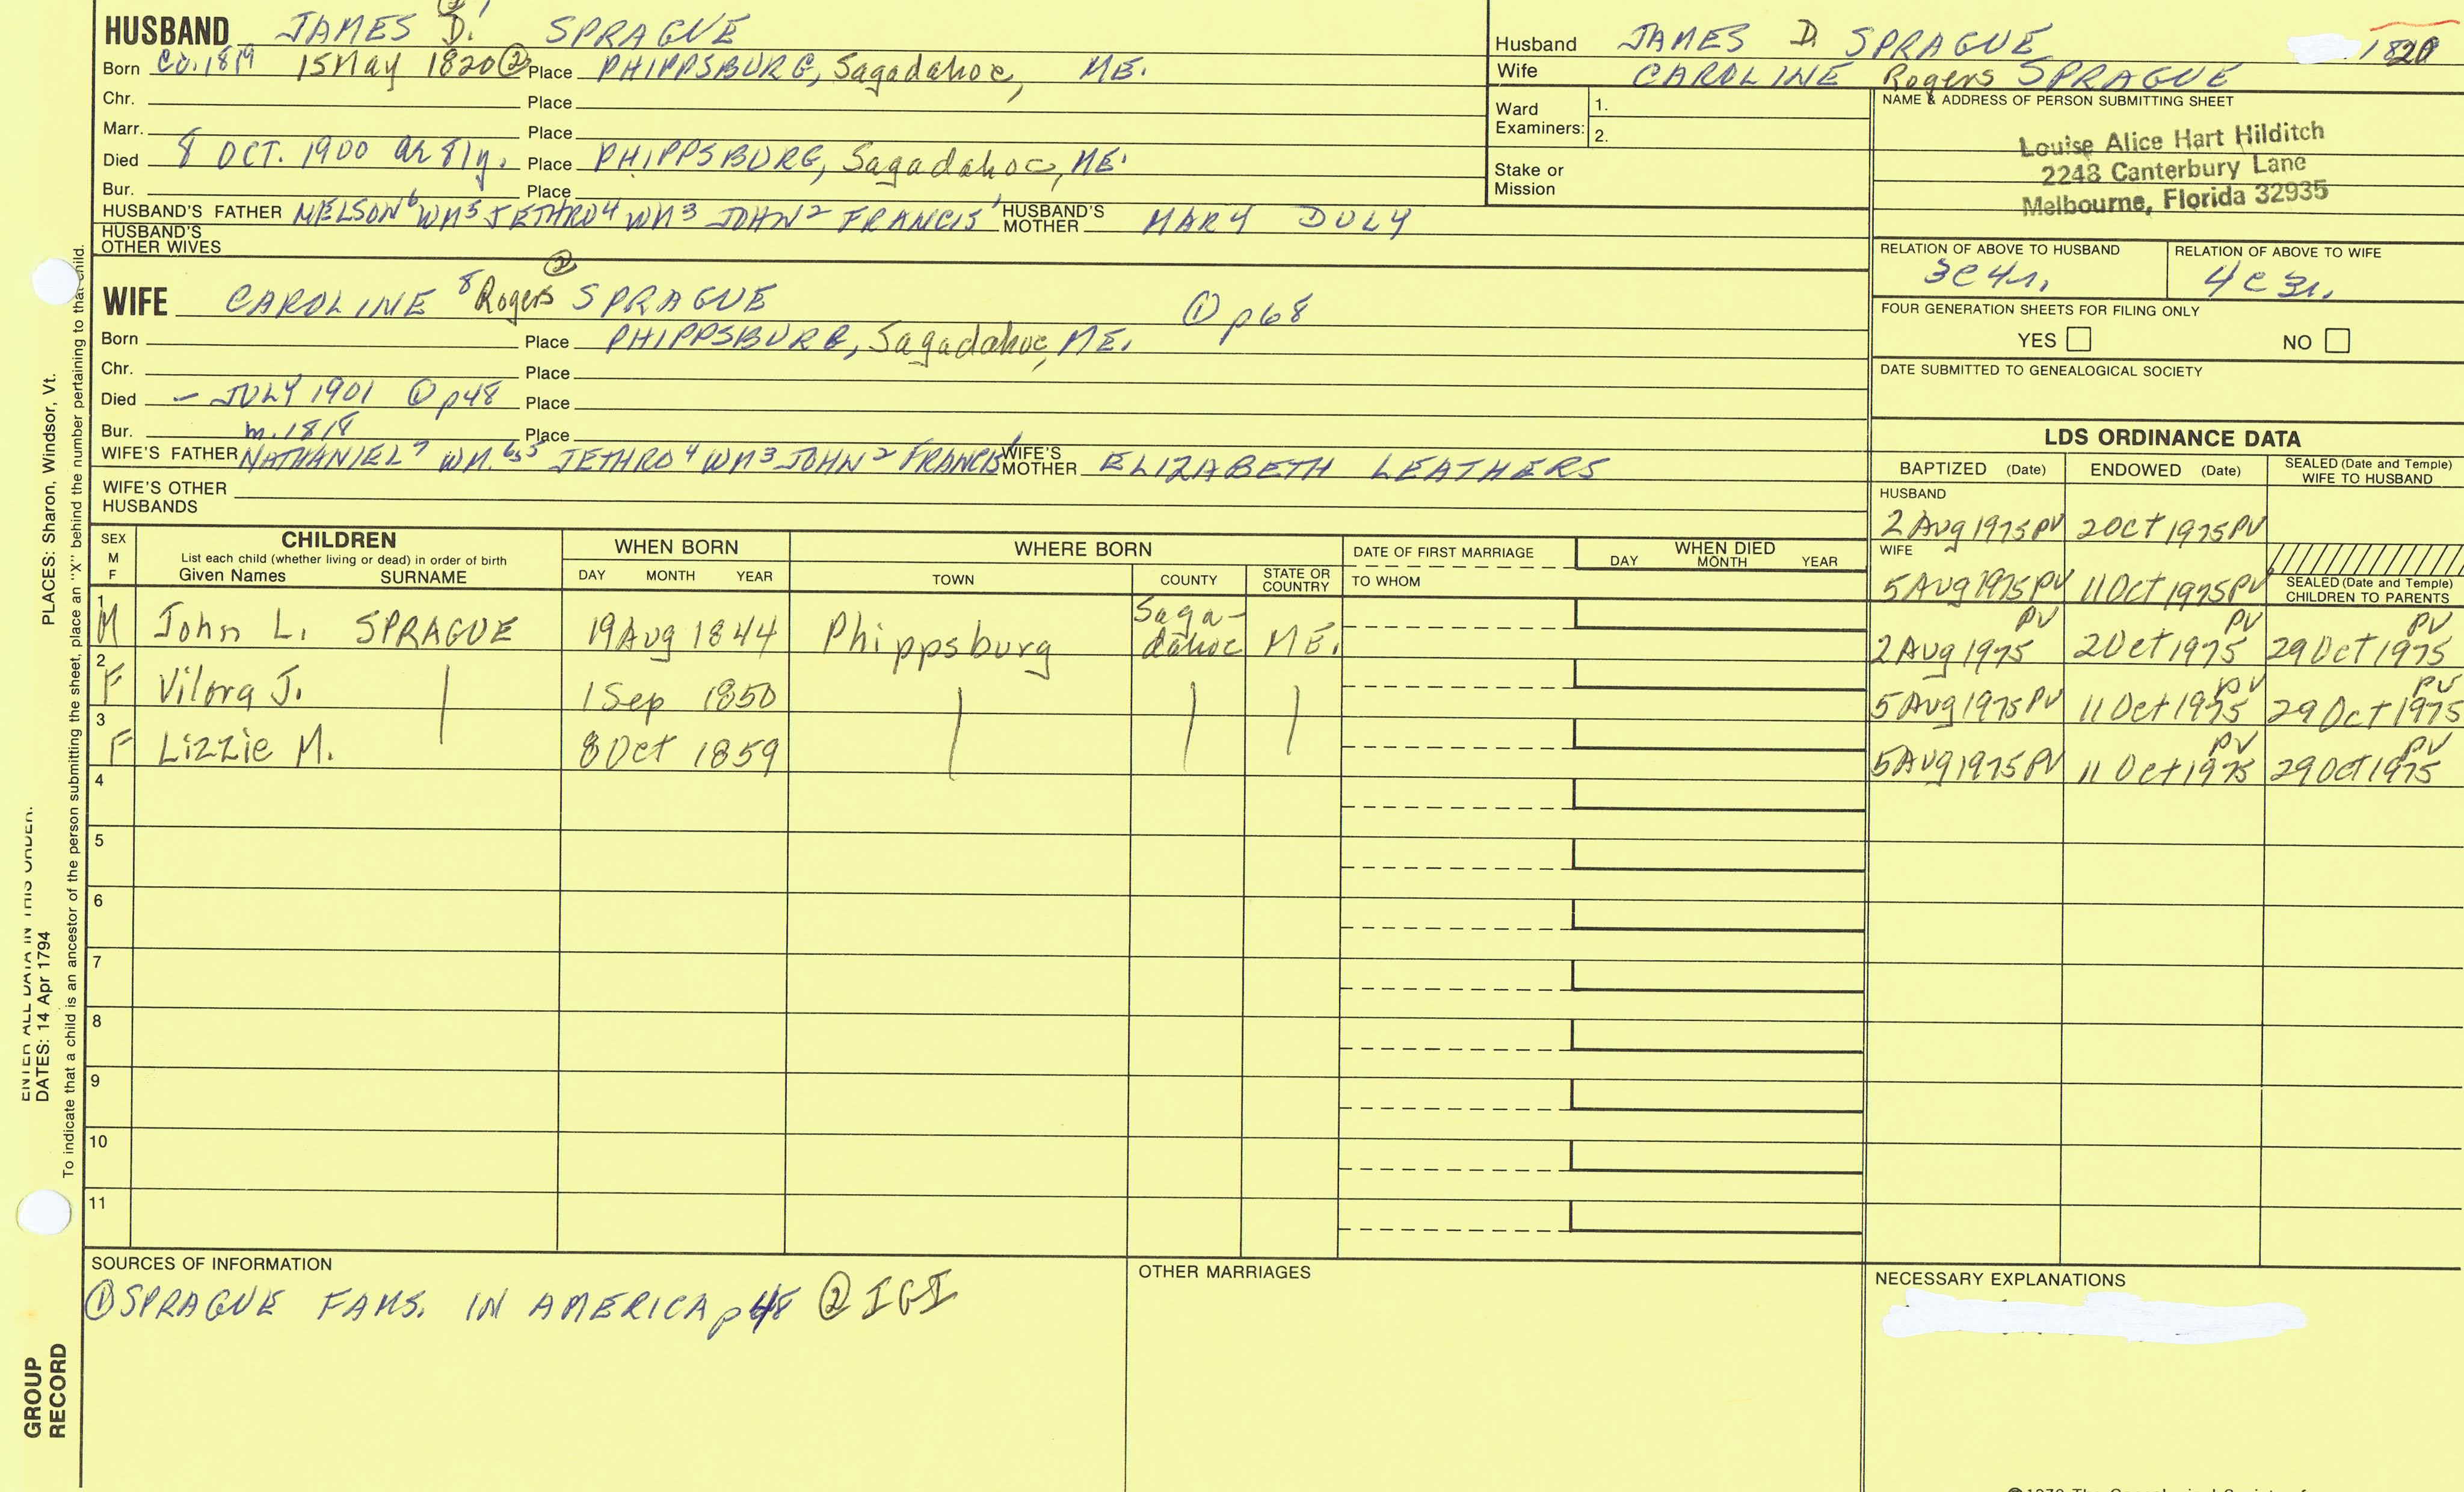 HUSBAND JAMES D. SPRAGUE
Born Ca. 1819 15 May 1820 ② Place PHIPPSBURG, Sagadahoc, ME.
Chr. Place
Marr. Place
Died 8 OCT. 1900 ae 81y. Place PHIPPSBURG, Sagadahoc, ME.
Bur. Place
HUSBAND'S FATHER NELSON⁶ WM⁵ JETHRO⁴ WM³ JOHN² FRANCIS¹ HUSBAND'S MOTHER MARY DULY
HUSBAND'S OTHER WIVES
②
WIFE CAROLINE ⁸ Rogers SPRAGUE ① p68
Born Place PHIPPSBURG, Sagadahoc, ME.
Chr. Place
Died – JULY 1901 ① p48 Place
Bur. m. 1818 Place
WIFE'S FATHER NATHANIEL⁷ WM.⁶,⁵ JETHRO⁴ WM³ JOHN² FRANCIS¹ WIFE'S MOTHER ELIZABETH LEATHERS
WIFE'S OTHER HUSBANDS
Husband JAMES D. SPRAGUE 1820
Wife CAROLINE Rogers SPRAGUE
Ward Examiners: 1.
2.
Stake or Mission
NAME & ADDRESS OF PERSON SUBMITTING SHEET
Louise Alice Hart Hilditch
2248 Canterbury Lane
Melbourne, Florida 32935
RELATION OF ABOVE TO HUSBAND RELATION OF ABOVE TO WIFE
3c4r. 4c3r.
FOUR GENERATION SHEETS FOR FILING ONLY
YES NO
DATE SUBMITTED TO GENEALOGICAL SOCIETY
LDS ORDINANCE DATA
BAPTIZED (Date) ENDOWED (Date) SEALED (Date and Temple) WIFE TO HUSBAND
HUSBAND
2 Aug 1975 PV 2 Oct 1975 PV
WIFE
5 Aug 1975 PV 11 Oct 1975 PV
SEALED (Date and Temple) CHILDREN TO PARENTS
SEX M F
CHILDREN
List each child (whether living or dead) in order of birth
Given Names SURNAME
WHEN BORN
DAY MONTH YEAR
WHERE BORN
TOWN COUNTY STATE OR COUNTRY
DATE OF FIRST MARRIAGE
TO WHOM
WHEN DIED
DAY MONTH YEAR
1 M John L. SPRAGUE 19 Aug 1844 Phippsburg Sagadahoc ME. 2 Aug 1975 PV 2 Oct 1975 PV 29 Oct 1975 PV
2 F Vilora J. | 1 Sep 1850 | | | 5 Aug 1975 PV 11 Oct 1975 PV 29 Oct 1975 PV
3 F Lizzie M. 8 Oct 1859 5 Aug 1975 PV 11 Oct 1975 PV 29 Oct 1975 PV
4
5
6
7
8
9
10
11
SOURCES OF INFORMATION
① SPRAGUE FAMS. IN AMERICA p48 ② IGI
OTHER MARRIAGES
NECESSARY EXPLANATIONS
PLACES: Sharon, Windsor, Vt.
ENTER ALL DATA IN THIS ORDER:
DATES: 14 Apr 1794
To indicate that a child is an ancestor of the person submitting the sheet, place an "X" behind the number pertaining to that child.
GROUP RECORD